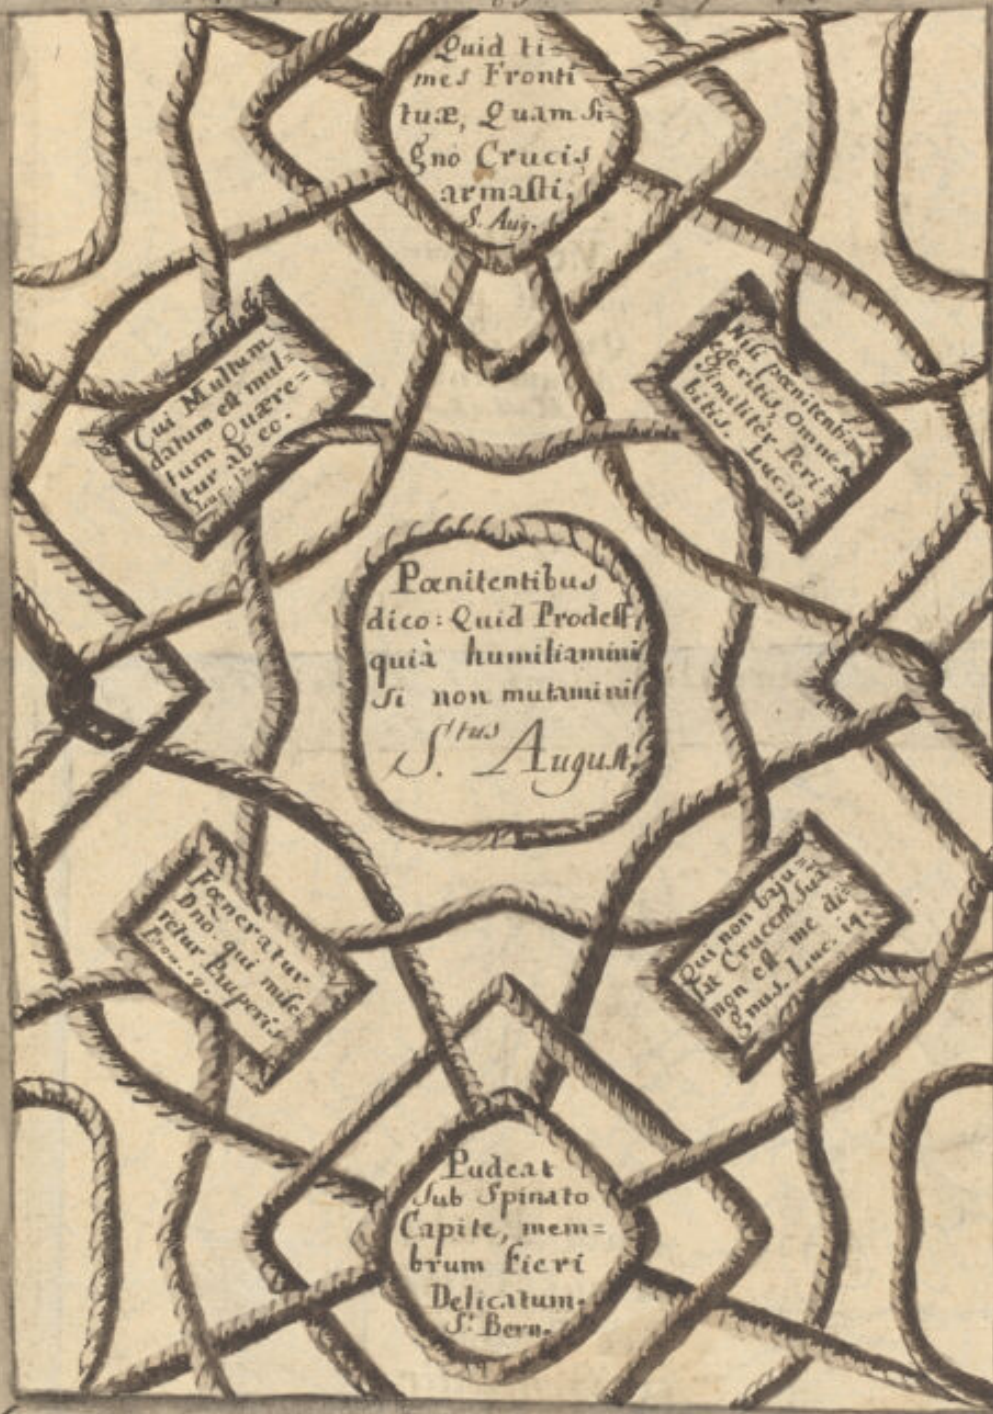 Quid ti=
mes Fronti
tuæ, Quam Si=
gno Crucis
armasti,
S. Aug.
Cui Multum
datum est mul=
tum Quære=
tur ab eo.
Luc. 12.
Nisi pœnitentia
egeritis, Omnes
Similitèr Peri=
bitis. Luc. 13.
Pœnitentibus
dico: Quid Prodest,
quià humiliamini
Si non mutamini
S.tus August,
Fœneratur
Dno: qui mise
retur Pauperis
Prov. 19.
Qui non baju=
lat Crucem Suã
non est me di=
gnus. Luc. 14.
Pudeat
Sub Spinato
Capite, mem=
brum fieri
Delicatum.
S. Bern.